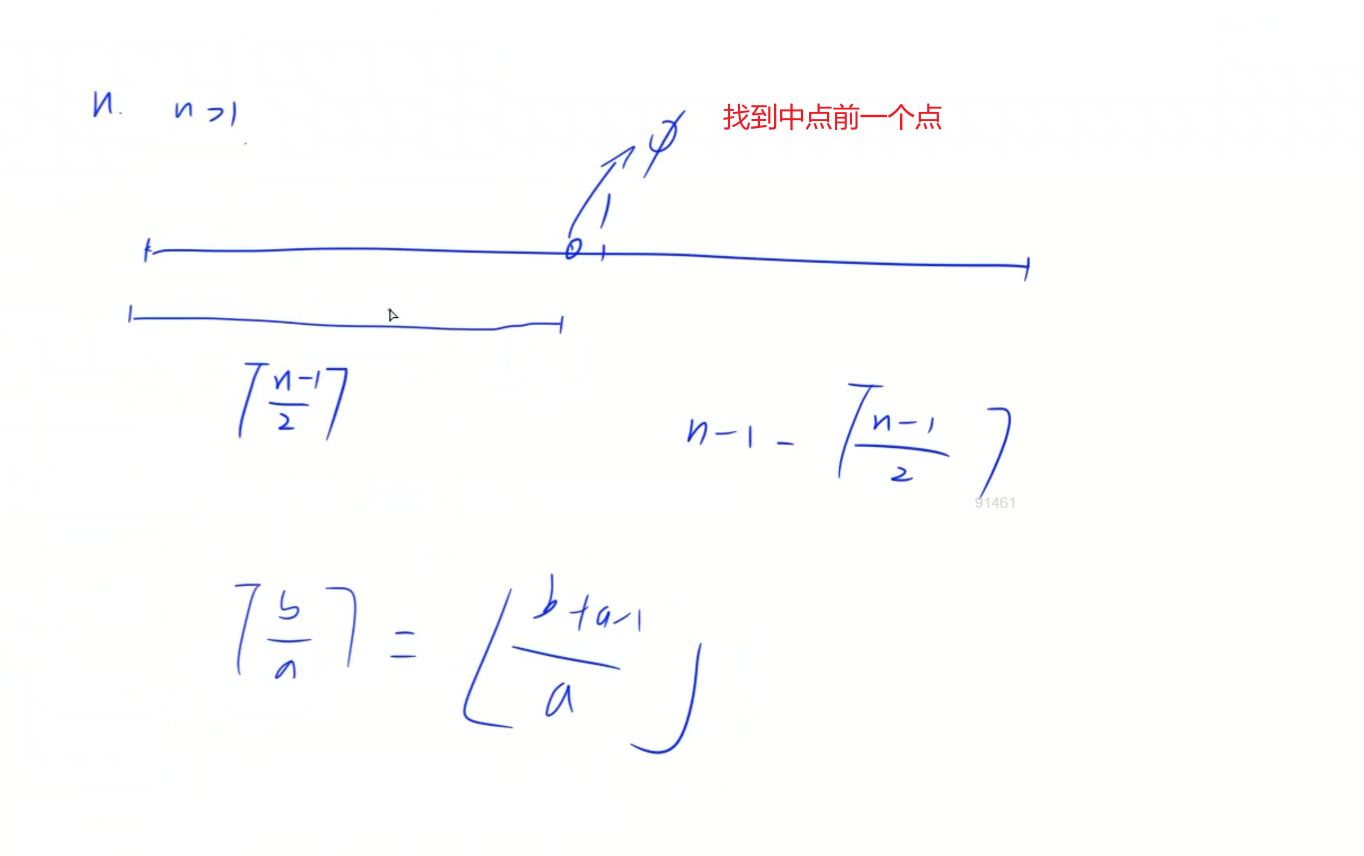 n. n>1
找到中点前一个点
∅
⌈(n-1)/2⌉
n-1-⌈(n-1)/2⌉
91461
⌈b/a⌉=⌊(b+a-1)/a⌋